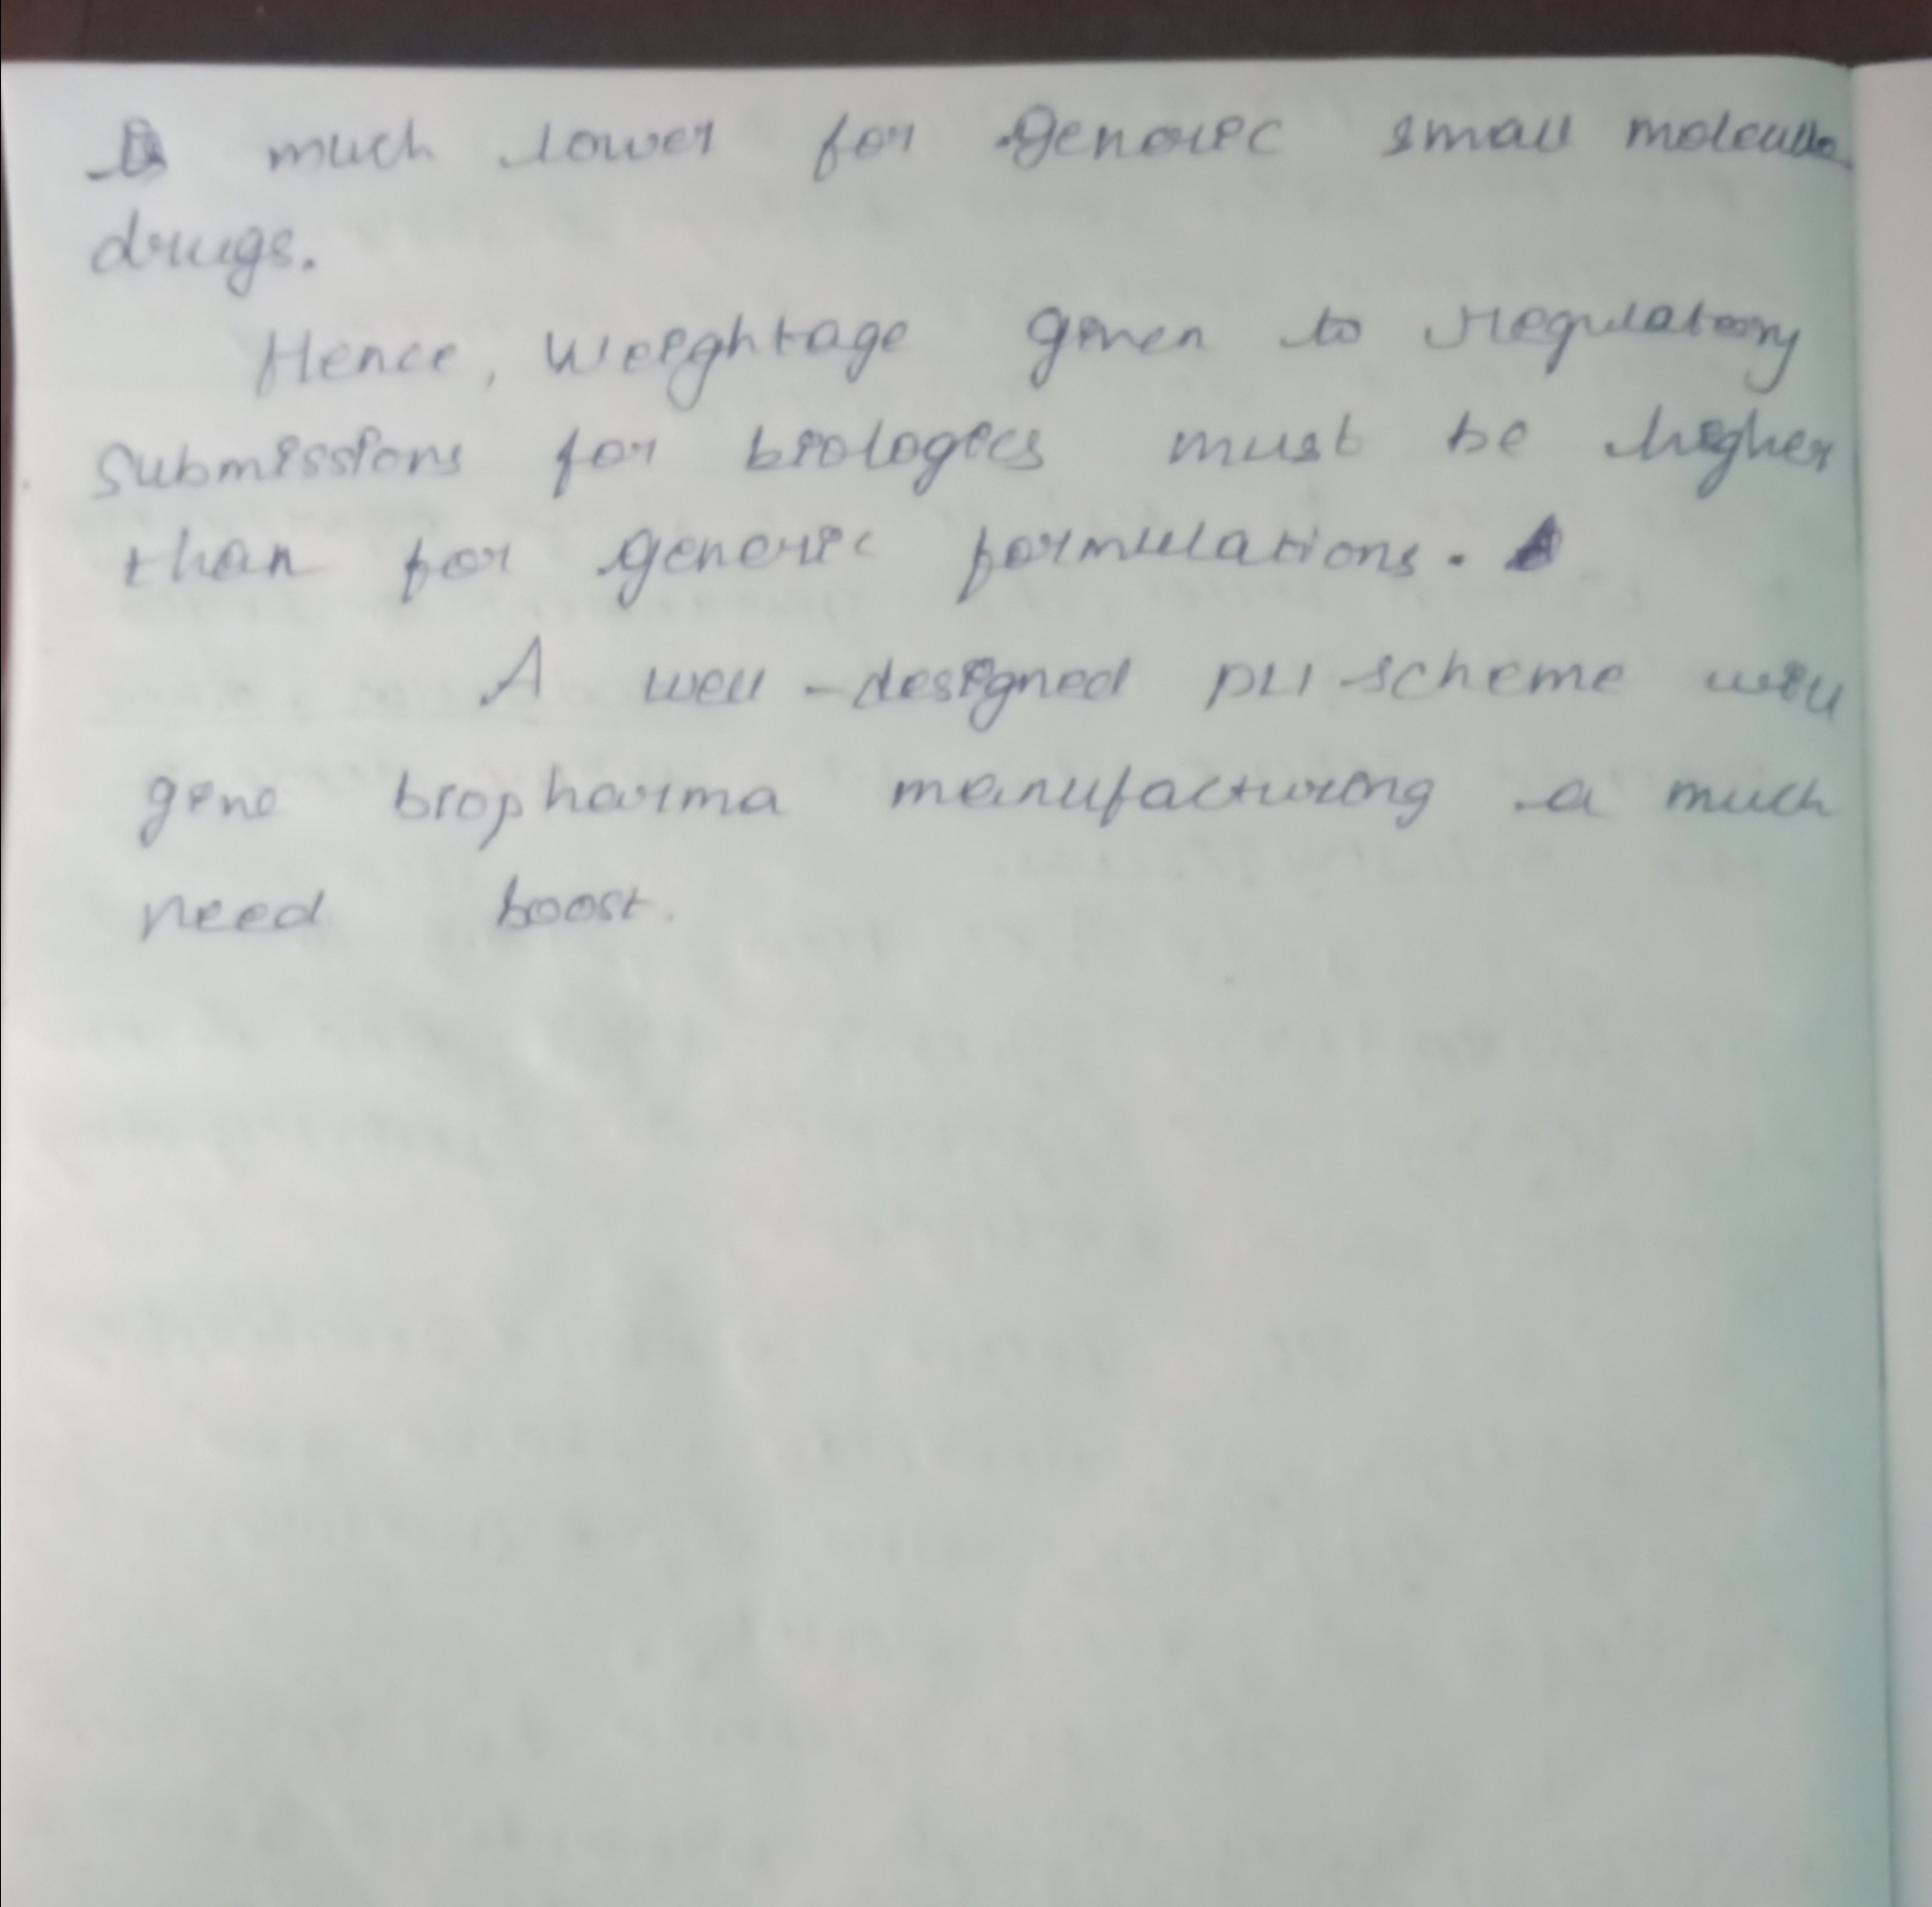 much lower for generic small molecule
drugs.
Hence, Weightage given to regulatory
Submissions for biologics must be higher
than for generic formulations.
A well-designed PLI scheme will
give biopharma manufacturing a much
need boost.